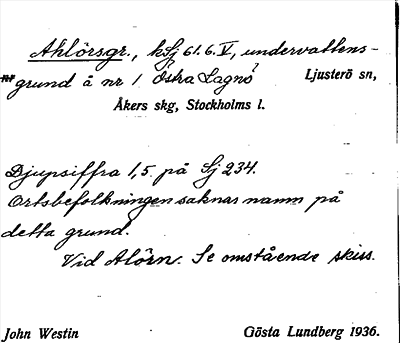 Ahlörsgr., kSj 61.6.V, undervattens-
grund å nr 1 Östra Lagnö Ljusterö sn,
Åkers skg, Stockholms l.
Djupsiffra 1,5. på Sj 234.
Ortsbefolkningen saknar namn på
detta grund.
Vid Alörn. Se omstående skiss.
John Westin Gösta Lundberg 1936.